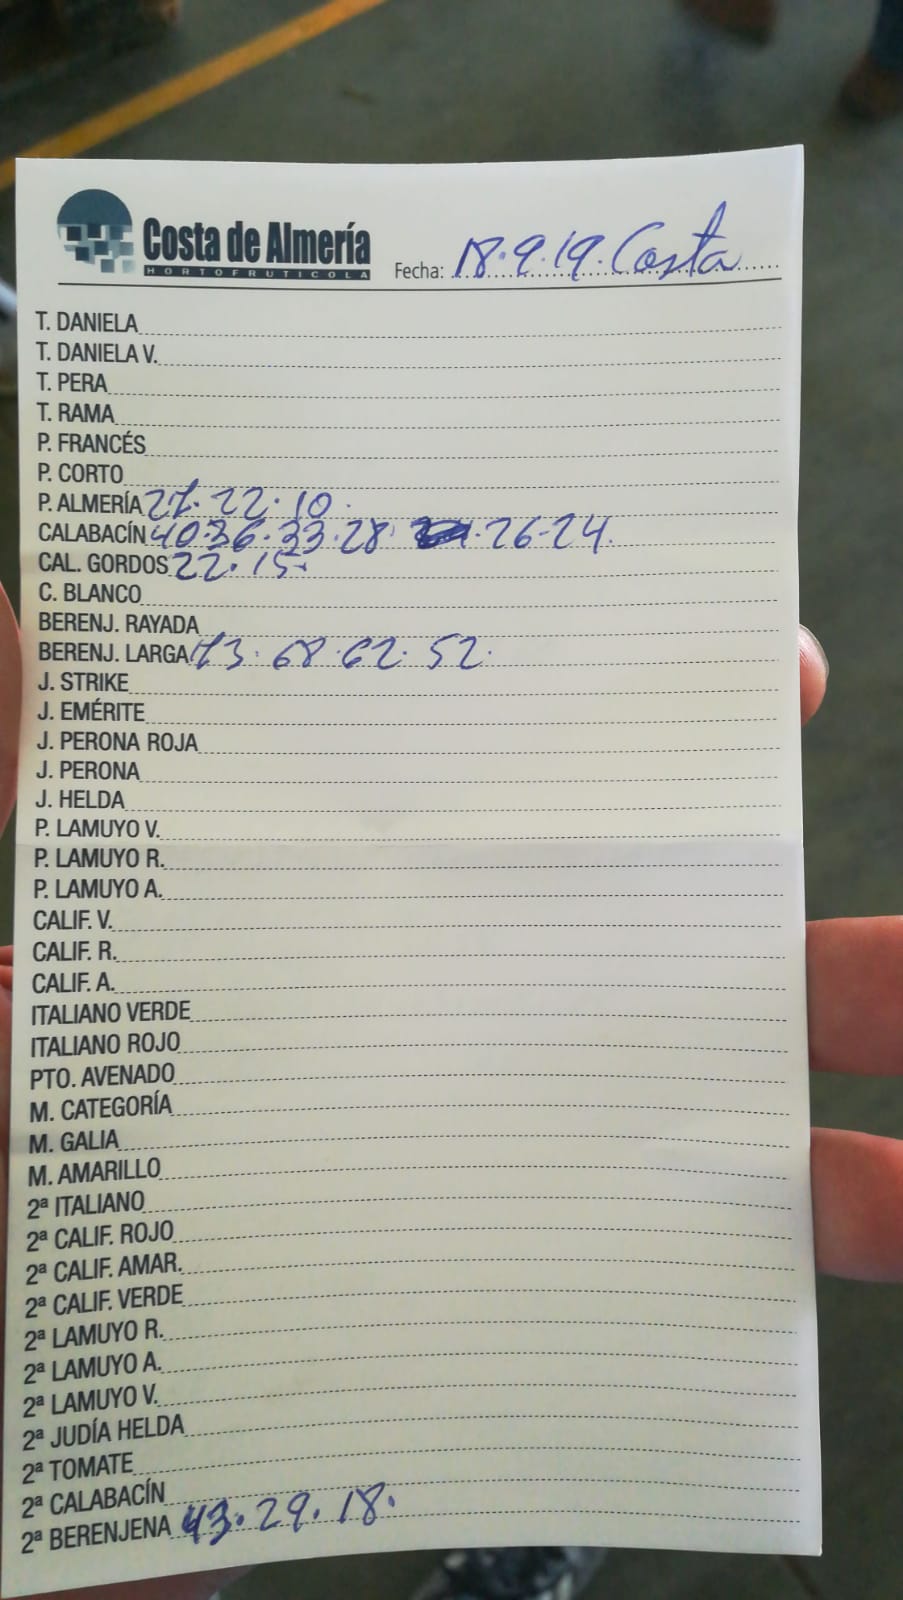 Costa de Almería
HORTOFRUTICOLA
Fecha: 18.9.19. Costa
T. DANIELA
T. DANIELA V.
T. PERA
T. RAMA
P. FRANCÉS
P. CORTO
P. ALMERÍA 27. 22. 10.
CALABACÍN 40.36.33.28. .26-24.
CAL. GORDOS 22.15.
C. BLANCO
BERENJ. RAYADA
BERENJ. LARGA 73. 68.62. 52.
J. STRIKE
J. EMÉRITE
J. PERONA ROJA
J. PERONA
J. HELDA
P. LAMUYO V.
P. LAMUYO R.
P. LAMUYO A.
CALIF. V.
CALIF. R.
CALIF. A.
ITALIANO VERDE
ITALIANO ROJO
PTO. AVENADO
M. CATEGORÍA
M. GALIA
M. AMARILLO
2ª ITALIANO
2ª CALIF. ROJO
2ª CALIF. AMAR.
2ª CALIF. VERDE
2ª LAMUYO R.
2ª LAMUYO A.
2ª LAMUYO V.
2ª JUDÍA HELDA
2ª TOMATE
2ª CALABACÍN
2ª BERENJENA 43.29.18.